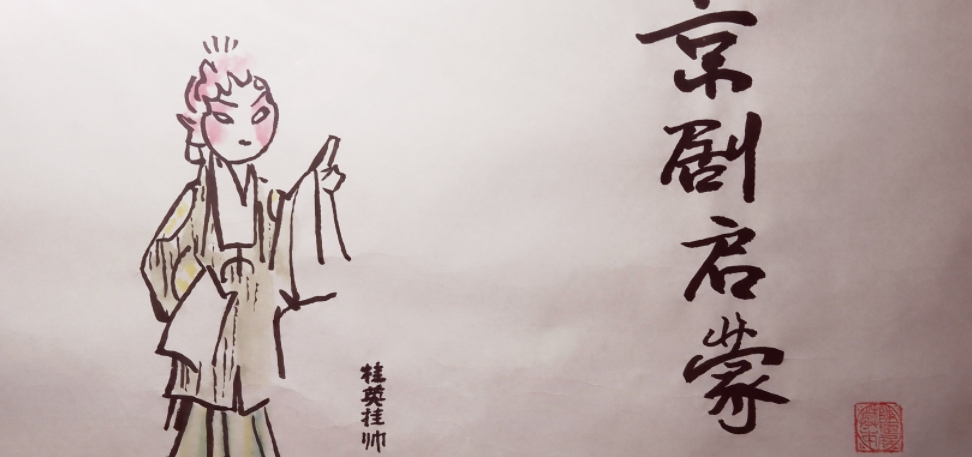 京剧启蒙
桂英挂帅